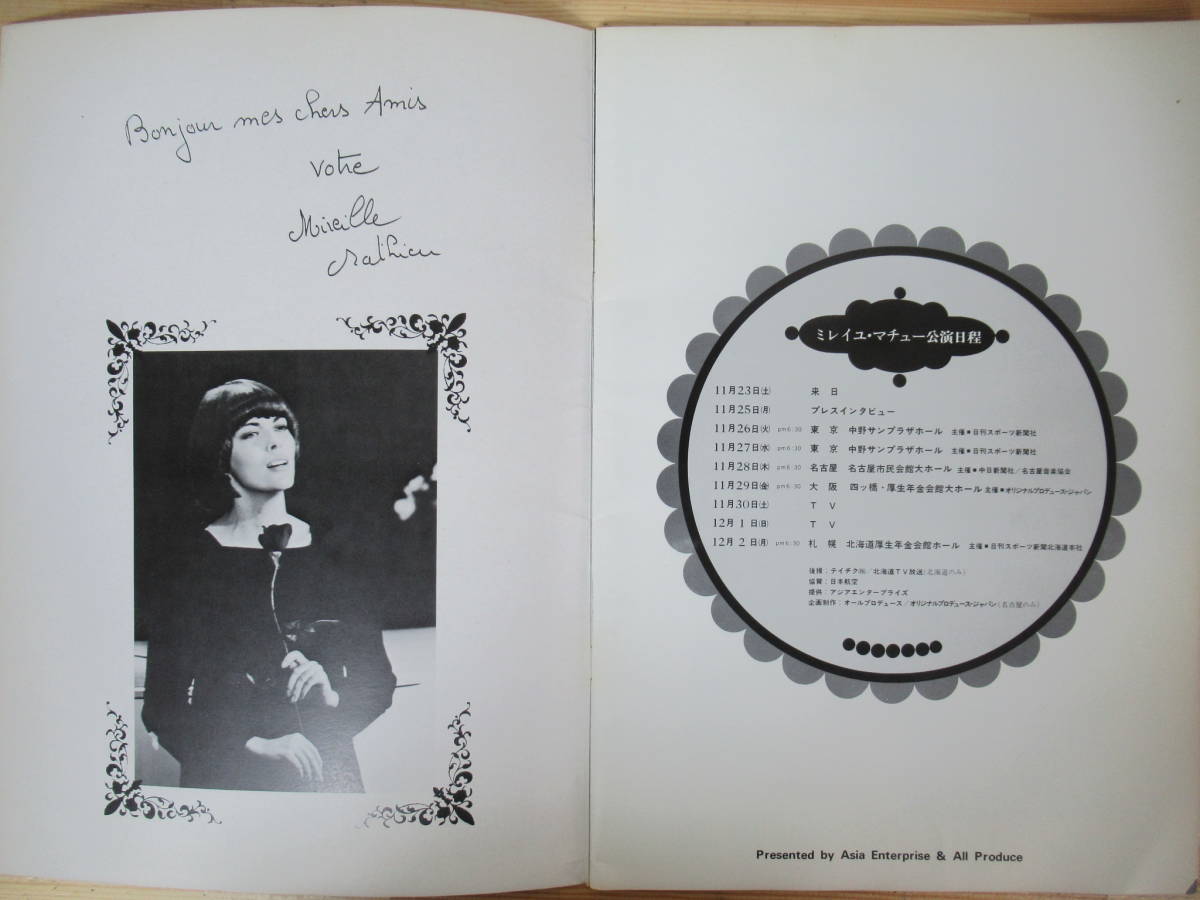 Bonjour mes chers Amis
votre
Mireille
Mathieu
ミレイユ・マチュー公演日程
11月23日(土) 来日
11月25日(月) プレスインタビュー
11月26日(火) pm6:30 東京 中野サンプラザホール 主催■日刊スポーツ新聞社
11月27日(水) pm6:30 東京 中野サンプラザホール 主催■日刊スポーツ新聞社
11月28日(木) pm6:30 名古屋 名古屋市民会館大ホール 主催■中日新聞社/名古屋音楽協会
11月29日(金) pm6:30 大阪 四ッ橋・厚生年金会館大ホール 主催■オリジナルプロデュース・ジャパン
11月30日(土) TV
12月1日(日) TV
12月2日(月) pm6:30 札幌 北海道厚生年金会館ホール 主催■日刊スポーツ新聞北海道本社
後援:テイチク㈱/北海道TV放送(北海道のみ)
協賛:日本航空
提供:アジアエンタープライズ
企画制作:オールプロデュース/オリジナルプロデュース・ジャパン(名古屋のみ)
Presented by Asia Enterprise & All Produce